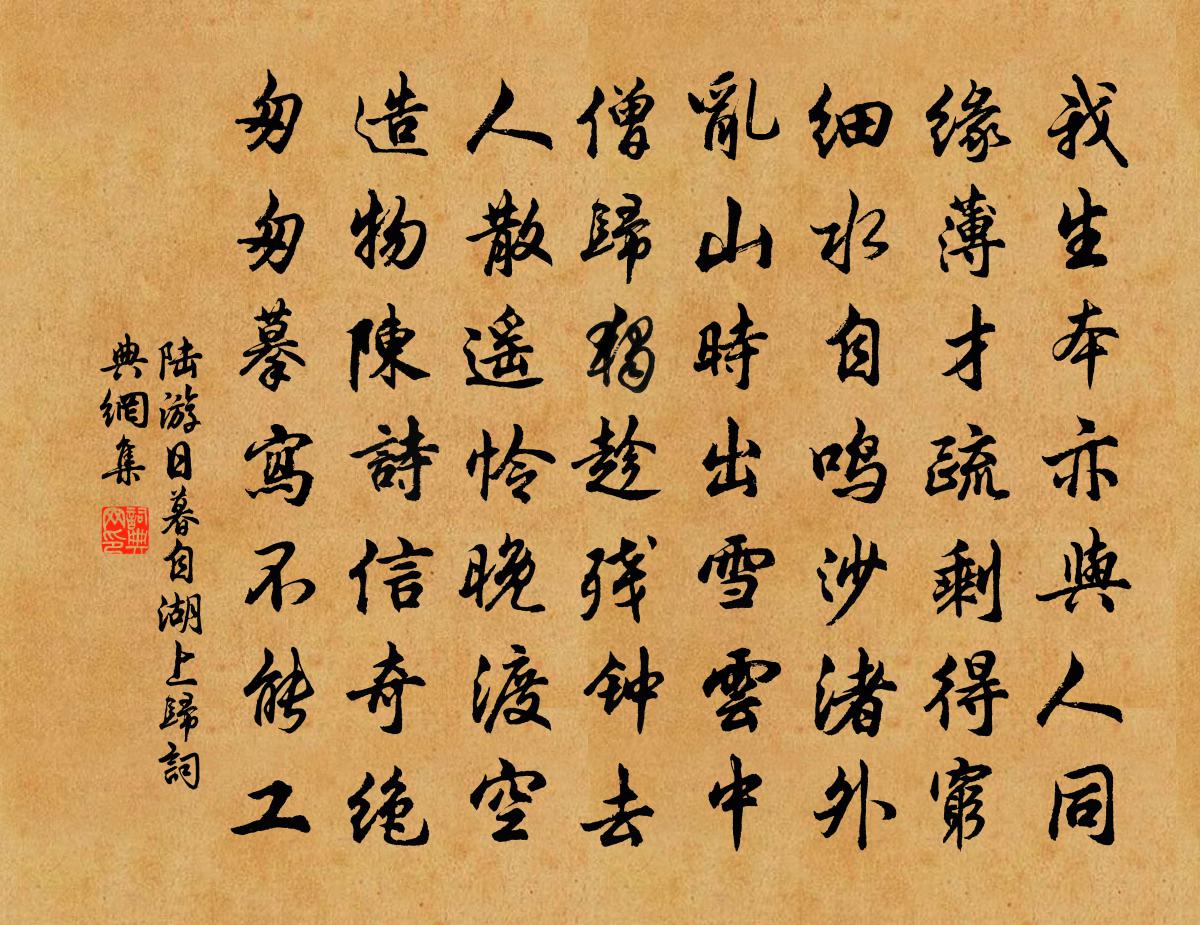 我生本亦與人同
緣薄才疏剩得窮
细水自鸣沙渚外
亂山時出雪雲中
僧歸獨趁残钟去
人散遥怜晚渡空
造物陳詩信奇绝
匆匆摹寫不能工
陆游日暮自湖上歸詞
典網集
詞典网印